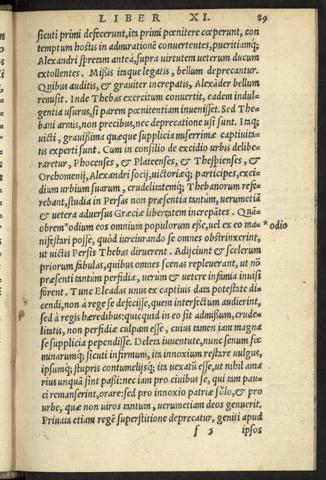 LIBER XI. 89
ſicuti primi defecerunt, ita primi pœnitere cœperunt, con
temptum hoſtis in admirationē conuertentes, pueritiamq́;
Alexandri ſpretam anteà, ſupra uirtutem ueterum ducum
extollentes. Miſsis itaque legatis, bellum deprecantur.
Quibus auditis, & grauiter increpatis, Alexāder bellum
remiſit. Inde Thebas exercitum conuertit, eadem indul-
gentia uſurus, ſi parem pœnitentiam inueniſſet. Sed The-
bani armis, non precibus, nec deprecatione uſi ſunt. Itaq́;
uicti, grauiſsima quæque ſupplicia miſerrimæ captiuita-
tis experti ſunt. Cum in conſilio de excidio urbis delibe-
raretur, Phocenſes, & Plateenſes, & Theſpienſes, &
Orchomenij, Alexandri ſocij, uictoriæq́; participes, exci-
dium urbium ſuarum, crudelitatemq́; Thebanorum refe-
rebant, ſtudia in Perſas non præſentia tantum, uerumetiā
& uetera aduerſus Græciæ libertatem increpātes. Quā-
obrem *odium eos omnium populorum eſſe, uel ex eo ma- *odio
nifeſtari poſſe, quòd iureiurando ſe omnes obſtrinxerint,
ut uictis Perſis Thebas diruerent. Adijciunt & ſcelerum
priorum fabulas, quibus omnes ſcenas repleuerant, ut nō
præſenti tantum perfidia, uerum & uetere infamia inuiſi
forent. Tunc Eleadas unus ex captiuis data poteſtate di-
cendi, non à rege ſe defeciſſe, quem interfectum audierint,
ſed à regis hæredibus: quicquid in eo ſit admiſſum, crude-
litatis, non perfidiæ culpam eſſe, cuius tamen iam magna
ſe ſupplicia pependiſſe. Deleta iuuentute, nunc ſenum fœ-
minarumq́; ſicuti infirmum, ita innoxium reſtare uulgus,
ipſumq́; ſtupris contumelijsq́; ita uexatū eſſe, ut nihil ama
rius unquā ſint paſsi: nec iam pro ciuibus ſe, qui tam pau-
ci remanſerint, orare: ſed pro innoxio patriæ ſolo, & pro
urbe, quæ non uiros tantum, uerumetiam deos genuerit.
Priuata etiam regē ſuperſtitione deprecatur, geniti apud
f 5 ipſos